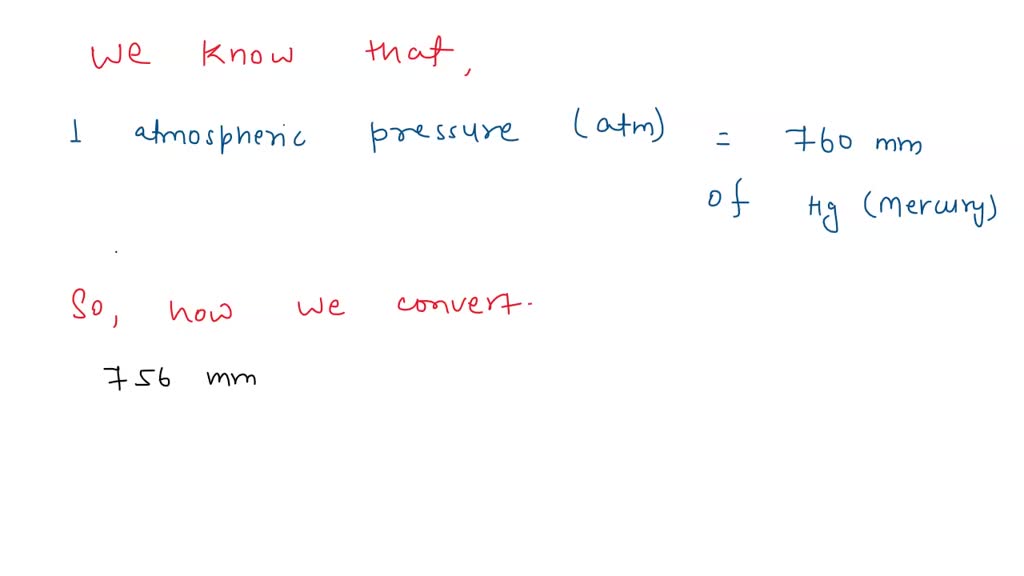 We know that,
1 atmospheric pressure (atm) = 760 mm
of Hg (Mercury)
So, now we convert.
756 mm